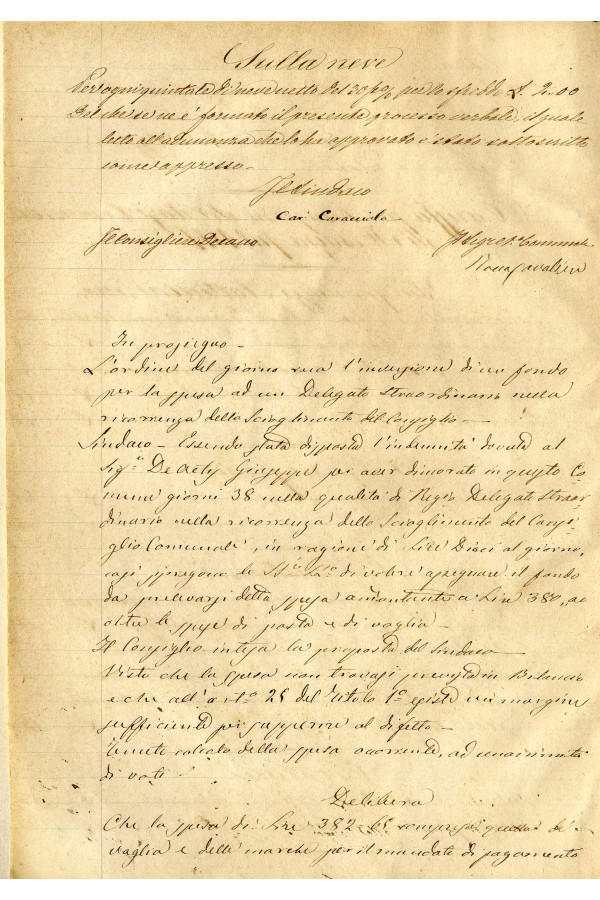 Sulla neve
Per ogni quintale di neve netto del 20 p% £. 2.00
Del che se ne é formato il presente processo verbale, il quale
letto all'adunanza che lo ha approvato é stato sottoscritto
come appresso -
Il Sindaco
Car. Caracciolo
Il Consigliere Decano
Il Segret. Comunale
Rocco Cavalieri
In prosieguo -
L'ordine del giorno reca l'inversione di un fondo
per la spesa ad un Delegato Straordinario nella
ricorrenza dello Scioglimento del Consiglio -
Sindaco - Essendo stata disposta l'indennità dovuta al
Sigr. Giuseppe per aver dimorato in questo Co-
mune giorni 38 nella qualità di Regio Delegato Straor-
dinario nella ricorrenza dello Scioglimento del Consi-
glio Comunale, in ragione di Lire Dieci al giorno,
di volere assegnare il fondo
da prelevarsi detta spesa ammontante a Lire 380, ed
oltre le spese di posta e di vaglia -
Il Consiglio intesa la proposta del Sindaco -
Visto che la spesa non trovasi prevista in Bilancio
e che all'arto 28 del Titolo 1º esiste un margine
sufficiente per sopperire al difetto -
Tenuto calcolo della spesa occorrente, ad unanimità
di voti
Delibera
Che la spesa di Lire 382 compreso di
vaglia e delle marche per il mandato di pagamento